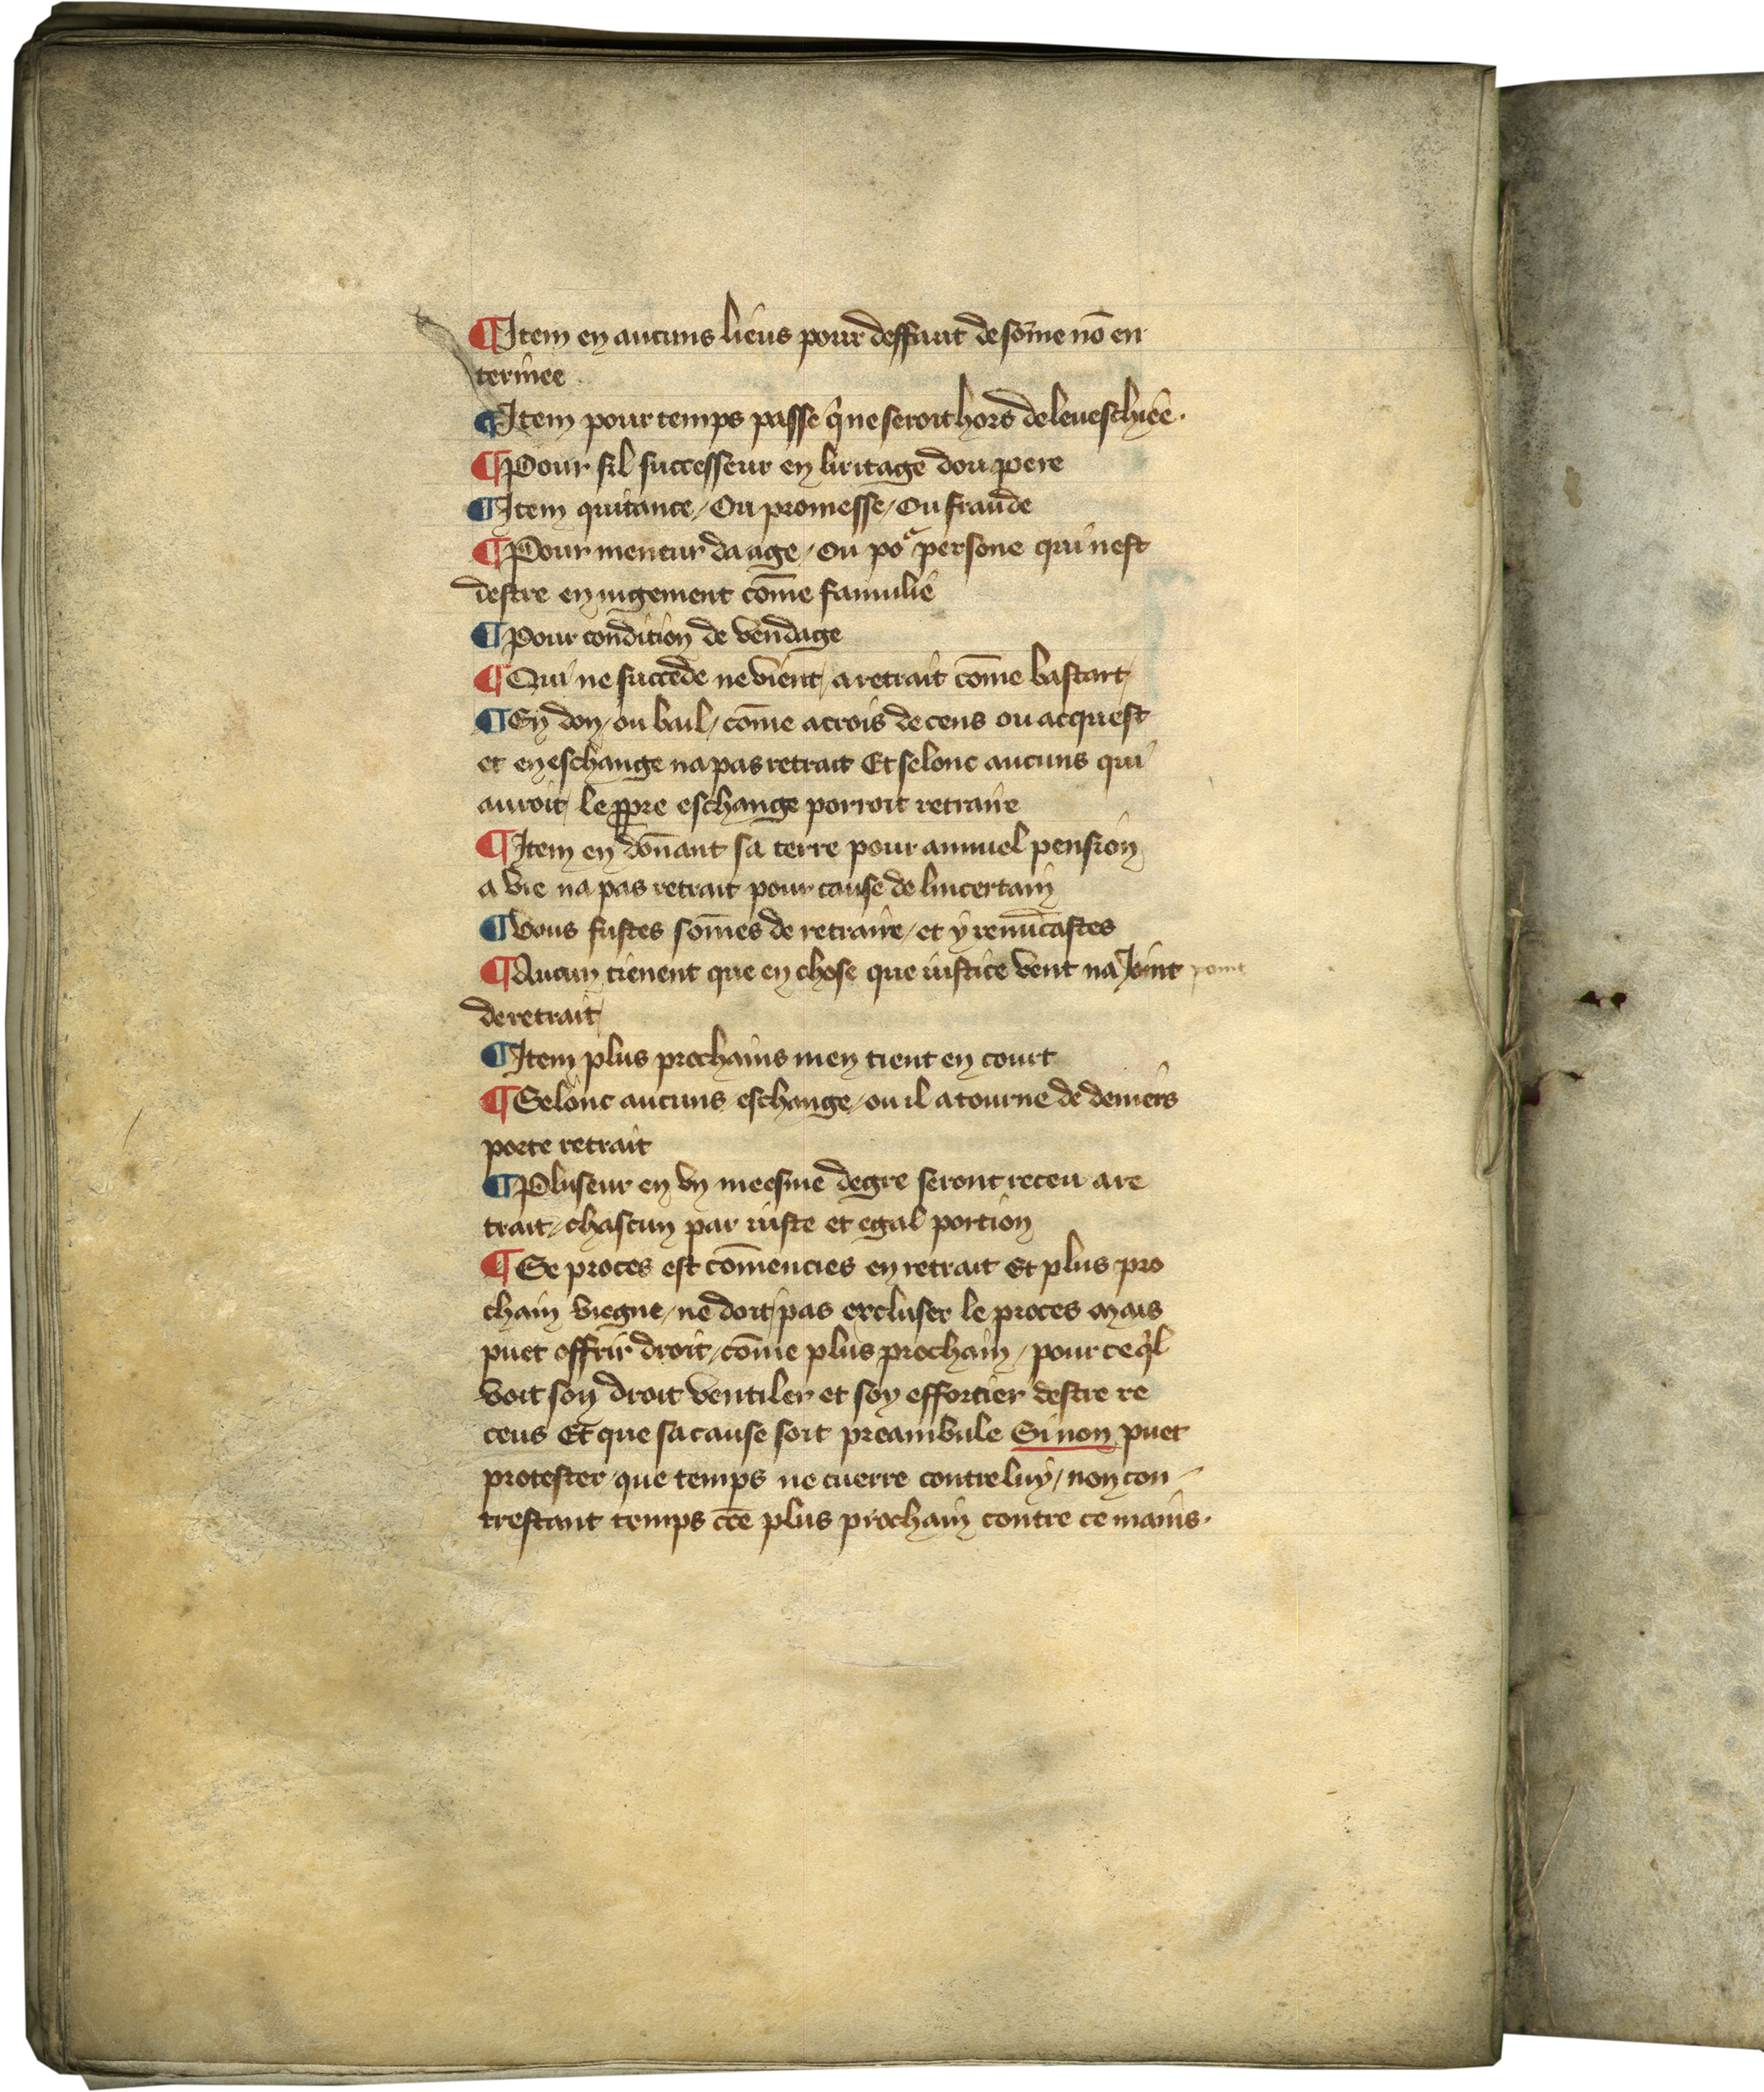 ¶ Item en aucuns lieus pour deffaut de sōme nō en
terinee
¶ Item pour temps passe q̄ ne seroit hors de leueschiee.
¶ Pour fil successeur en liritage dou pere
¶ Item quitance / Ou promesse / Ou fraude
¶ Pour meneur da age / ou poᵘʳ persone qui nest
destre en iugement cōme famulie
¶ Pour condition de vendage
¶ Qui ne succede ne vient / a retrait cōme bastart /
¶ En don / ou bail / cōme acrois de cens ou acquest
et en eschange na pas retrait Et selonc aucuns qui
auroit le ꝓpre eschange porroit retraire
¶ Item en dōnant sa terre pour annuel pension
a vie na pas retrait pour cause de lincertain
¶ Vous fustes sōmes de retraire / et y renūcastes
¶ Aucun tienent que en chose que iustice vent na point point
de retrait /
¶ Item plus prochains men tient en court
¶ Selonc aucuns eschange / ou il a tourne de deniers
porte retrait
¶ Pluseur en vn meesme degre seront receu a re
trait / chascun par iuste et egal portion
¶ Se proces est cōmencies en retrait Et plus pro
chain viegne / ne doit pas excluser le proces Mais
puet offrir droit / cōme plus prochain / pour ce q̄l
voit son droit ventiler et soy effortier destre re
ceus Et que sa cause soit preambule Si non puet
protester que temps ne cuerre contre luy / non con
trestant temps cēe plus prochain contre ce mains.